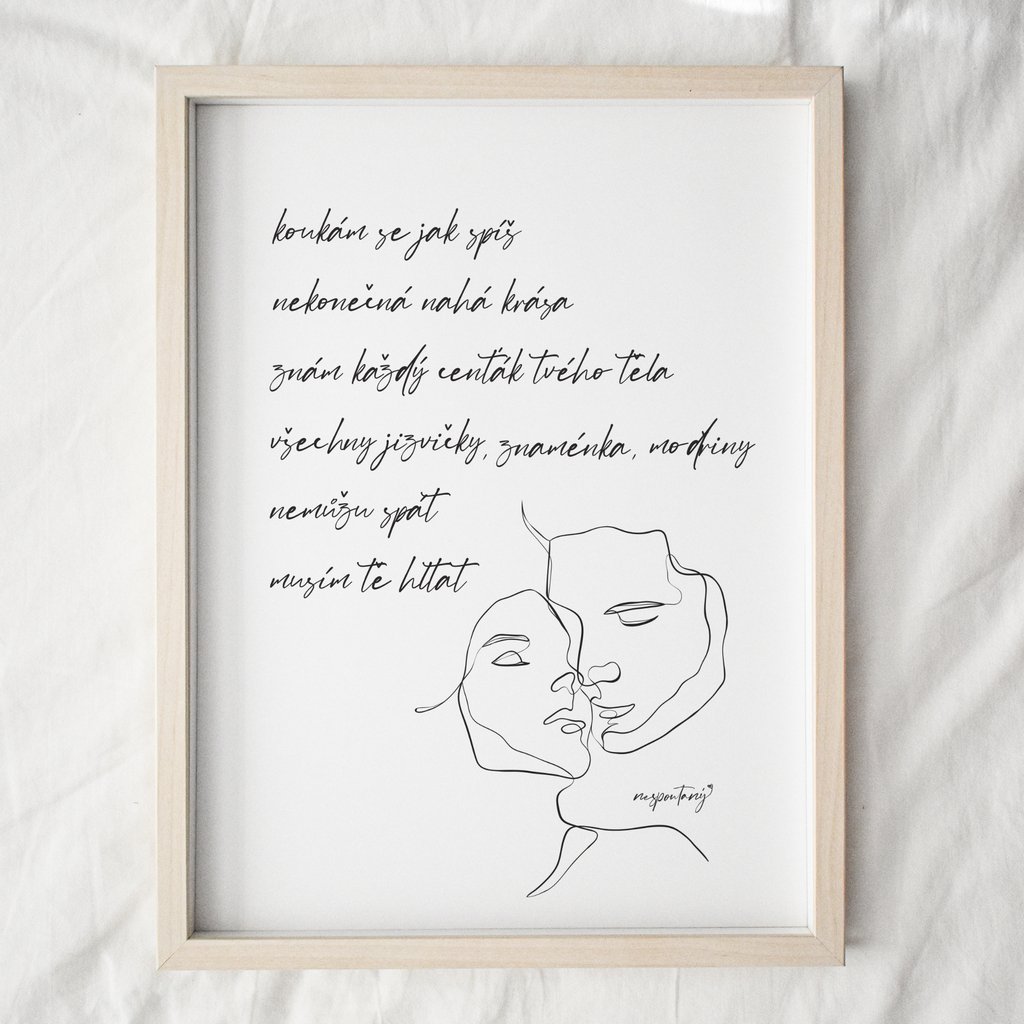 koukám se jak spíš
nekonečná nahá krása
znám každý centák tvého těla
všechny jizvičky, znaménka, modřiny
nemůžu spát
musím tě hltat
nespoutaný